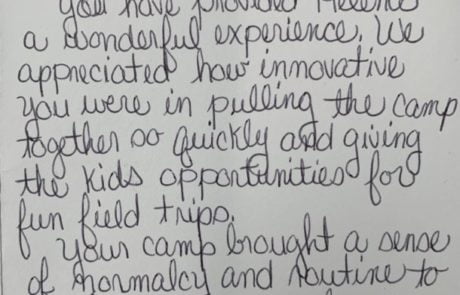 you have provided Helena
a wonderful experience. We
appreciated how innovative
you were in pulling the camp
together so quickly and giving
the kids opportunities for
fun field trips.
your camp brought a sense
of normalcy and routine to